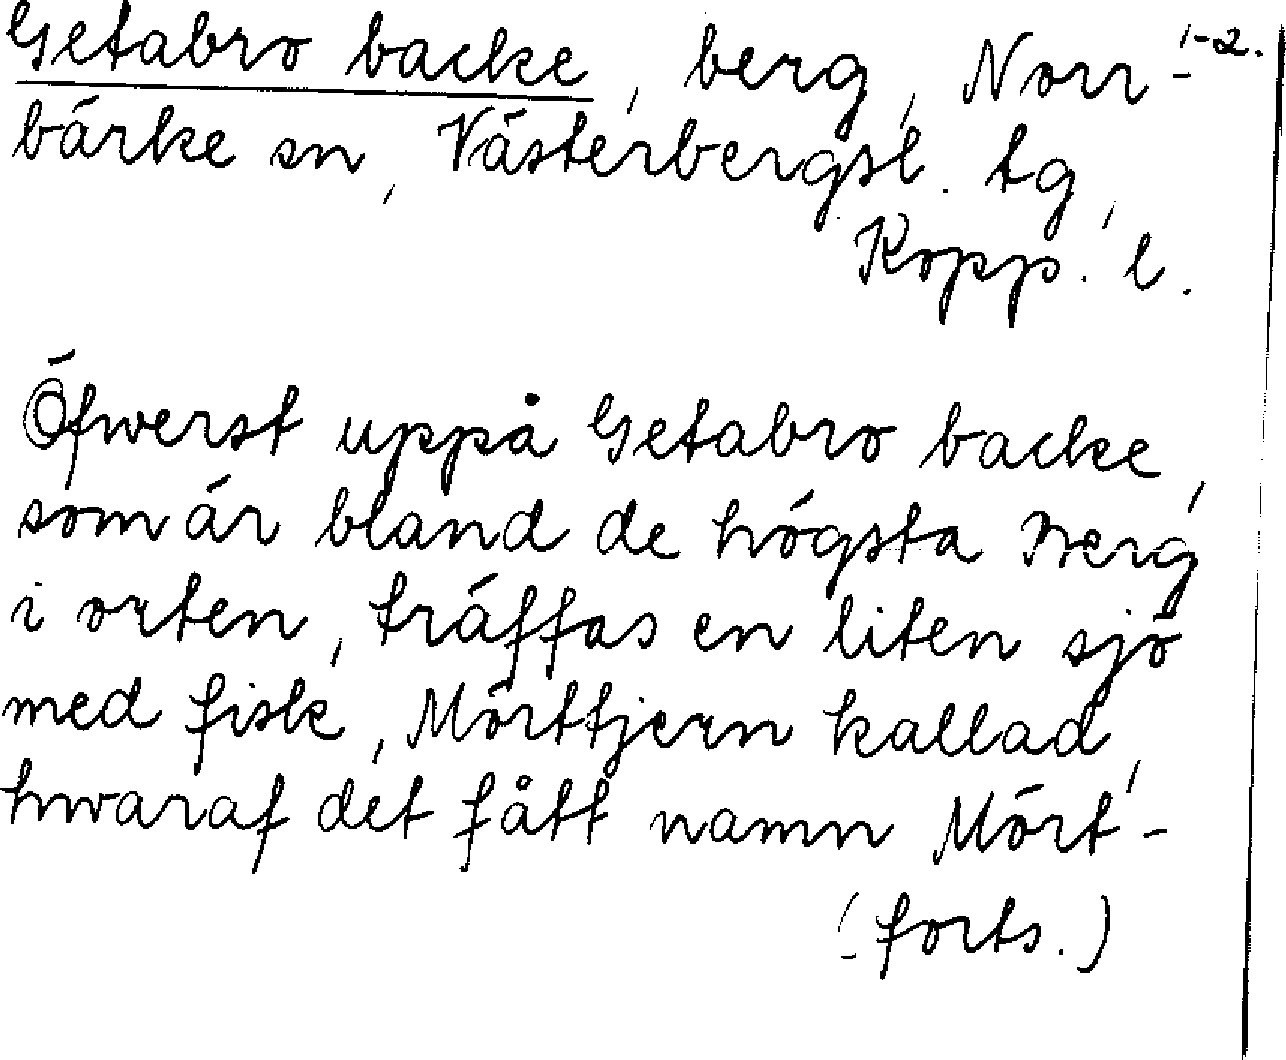 Getabro backe, berg, Norr- 1-2.
bärke sn, Västerbergsl. tg,
Kopp. l.
Öfwerst uppå Getabro backe,
som är bland de högsta Berg
i orten, träffas en liten sjö
med fisk, Mörttjern kallad,
hwaraf det fått namn Mört-
(forts.)